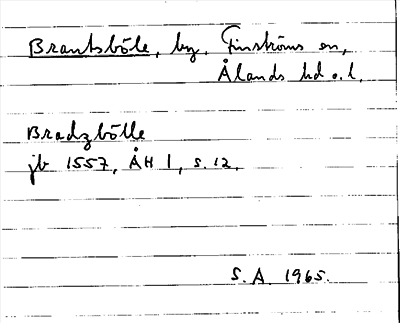 Brantsböle, by, Finströms sn,
Ålands hd o. l.
Bradzbölle
jb 1557, ÅH 1, s. 12.
S.A. 1965.